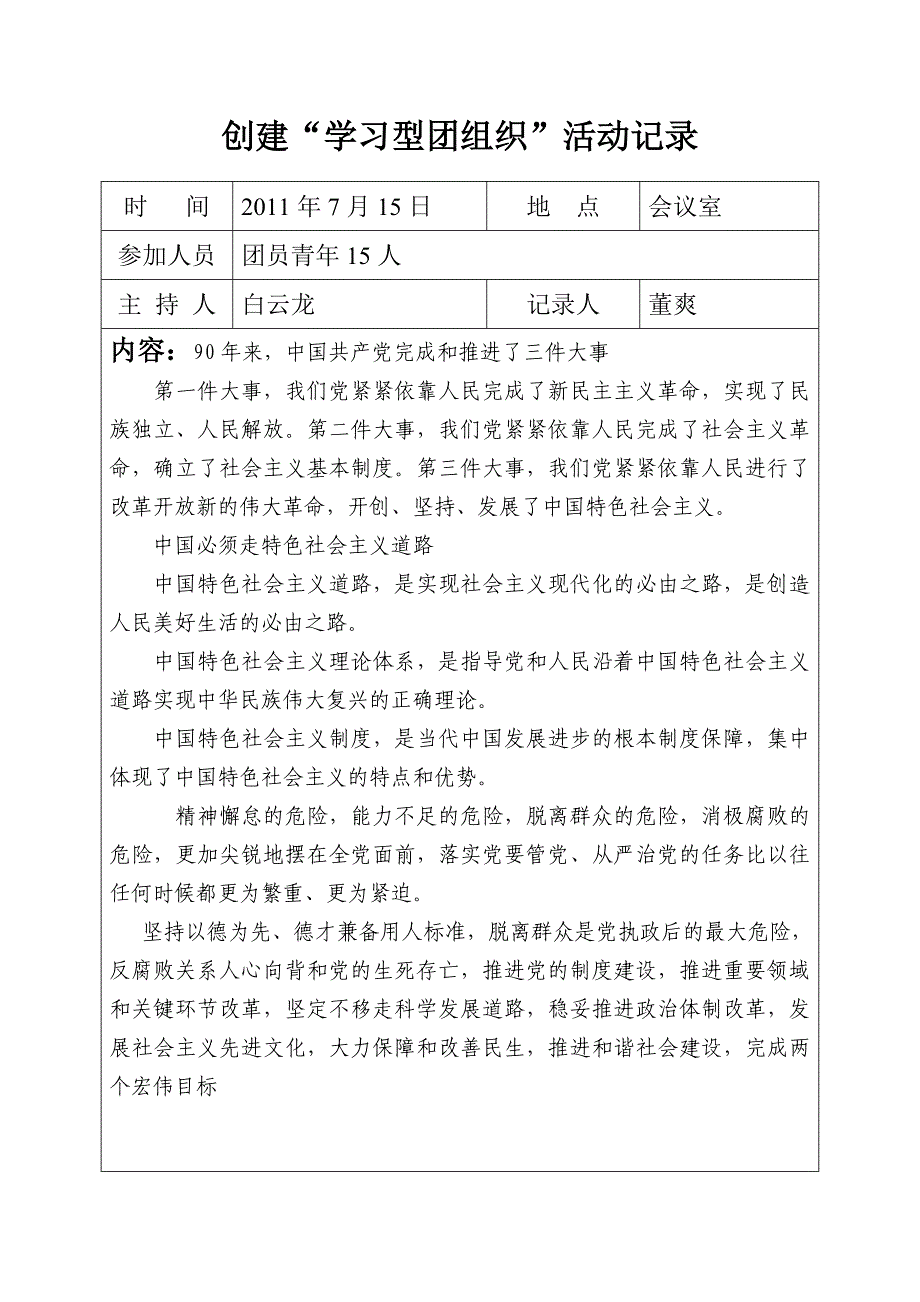 创建“学习型团组织”活动记录
时 间 2011 年 7 月 15 日 地 点 会议室
参加人员 团员青年 15 人
主 持 人 白云龙 记录人 董爽
内容：90 年来，中国共产党完成和推进了三件大事
第一件大事，我们党紧紧依靠人民完成了新民主主义革命，实现了民
族独立、人民解放。第二件大事，我们党紧紧依靠人民完成了社会主义革
命，确立了社会主义基本制度。第三件大事，我们党紧紧依靠人民进行了
改革开放新的伟大革命，开创、坚持、发展了中国特色社会主义。
中国必须走特色社会主义道路
中国特色社会主义道路，是实现社会主义现代化的必由之路，是创造
人民美好生活的必由之路。
中国特色社会主义理论体系，是指导党和人民沿着中国特色社会主义
道路实现中华民族伟大复兴的正确理论。
中国特色社会主义制度，是当代中国发展进步的根本制度保障，集中
体现了中国特色社会主义的特点和优势。
精神懈怠的危险，能力不足的危险，脱离群众的危险，消极腐败的
危险，更加尖锐地摆在全党面前，落实党要管党、从严治党的任务比以往
任何时候都更为繁重、更为紧迫。
坚持以德为先、德才兼备用人标准，脱离群众是党执政后的最大危险，
反腐败关系人心向背和党的生死存亡，推进党的制度建设，推进重要领域
和关键环节改革，坚定不移走科学发展道路，稳妥推进政治体制改革，发
展社会主义先进文化，大力保障和改善民生，推进和谐社会建设，完成两
个宏伟目标